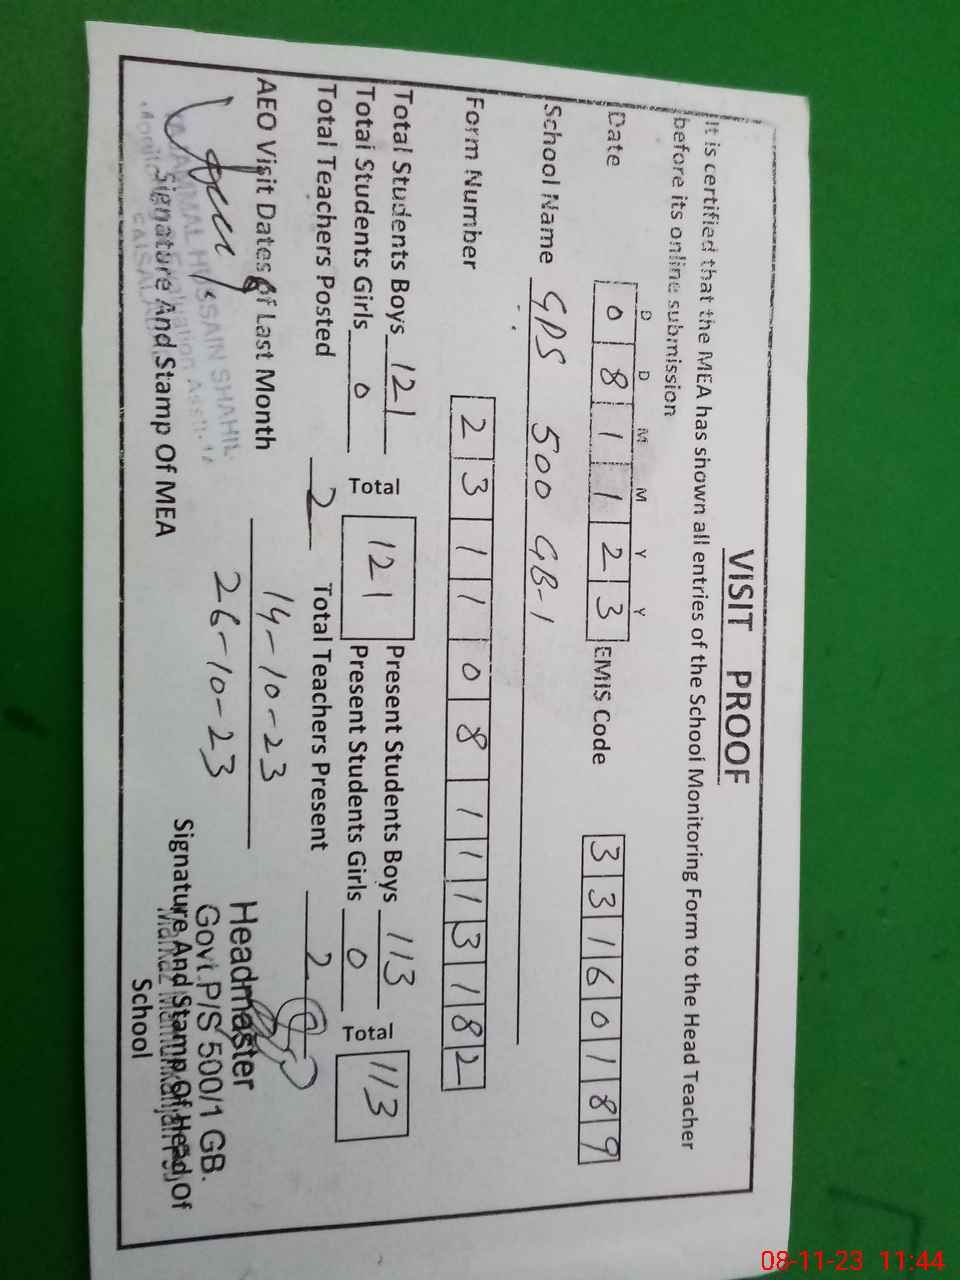 VISIT PROOF
It is certified that the MEA has shown all entries of the School Monitoring Form to the Head Teacher
before its online submission
D D M M Y Y
Date 0 8 1 1 2 3 EMIS Code 3 3 1 6 0 1 8 9
School Name GPS 500 GB-1
Form Number 2 3 1 1 0 8 1 1 1 3 1 8 2
Total Students Boys 121 Total 121 Present Students Boys 113 Total 113
Total Students Girls 0 Present Students Girls 0
Total Teachers Posted 2 Total Teachers Present 2
AEO Visit Dates Of Last Month 14-10-23
26-10-23
HUSSAIN SHAHIL
Signature And Stamp Of MEA
Headmaster
Govt.P/S 500/1 GB.
Signature And Stamp Of Head Of
School
08-11-23 11:44